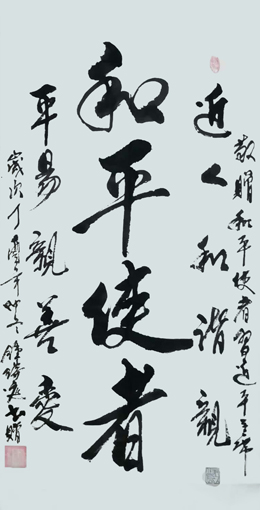 敬贈和平使者習近平主席
近人和谐親
和平使者
平易親善愛
歲次丁酉年